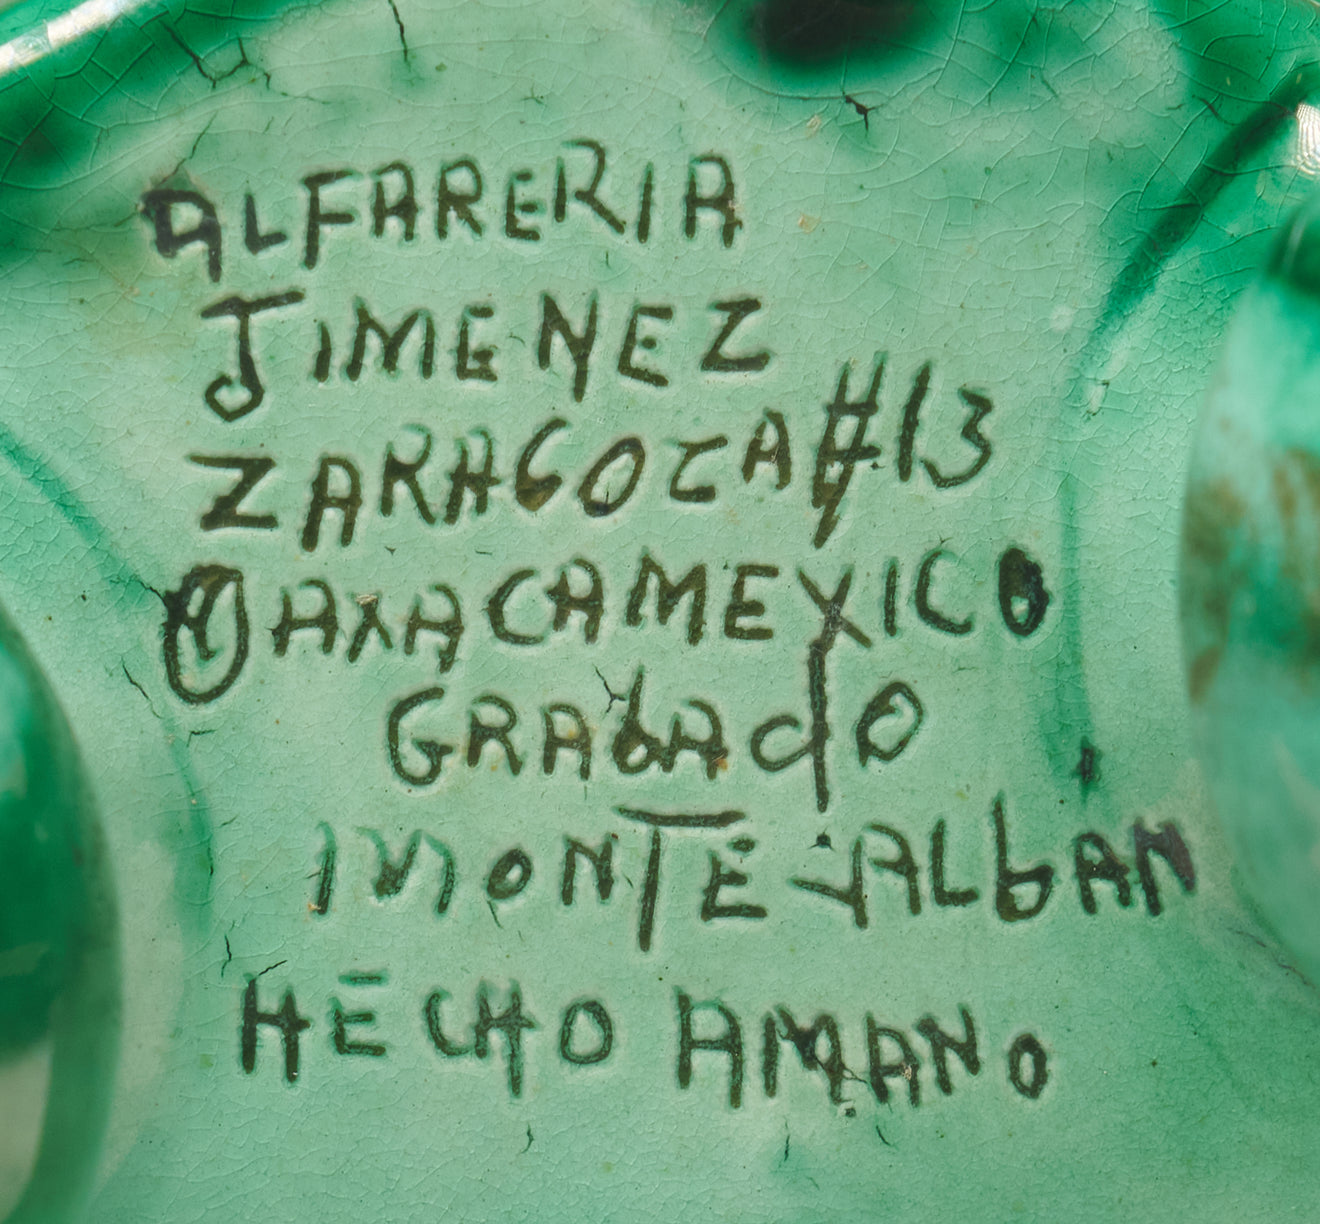 ALFARERIA
JIMENEZ
ZARAGOZA #13
OAXACA MEXICO
GRAbAdO
MONTE ALbAN
HECHO AMANO